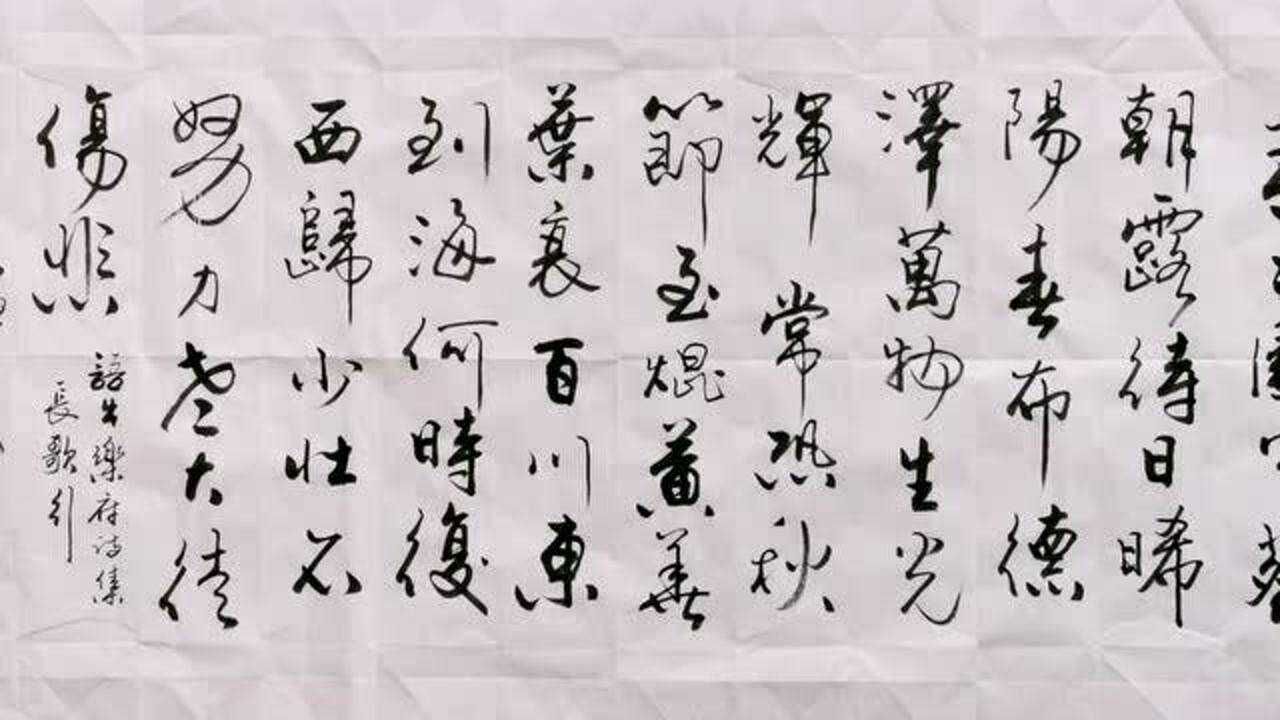 朝露待日晞
陽春布德
澤萬物生光
輝常恐秋
節至焜黃華
葉衰百川東
到海何時復
西歸少壯不
努力老大徒
傷悲
語出樂府詩集
長歌行